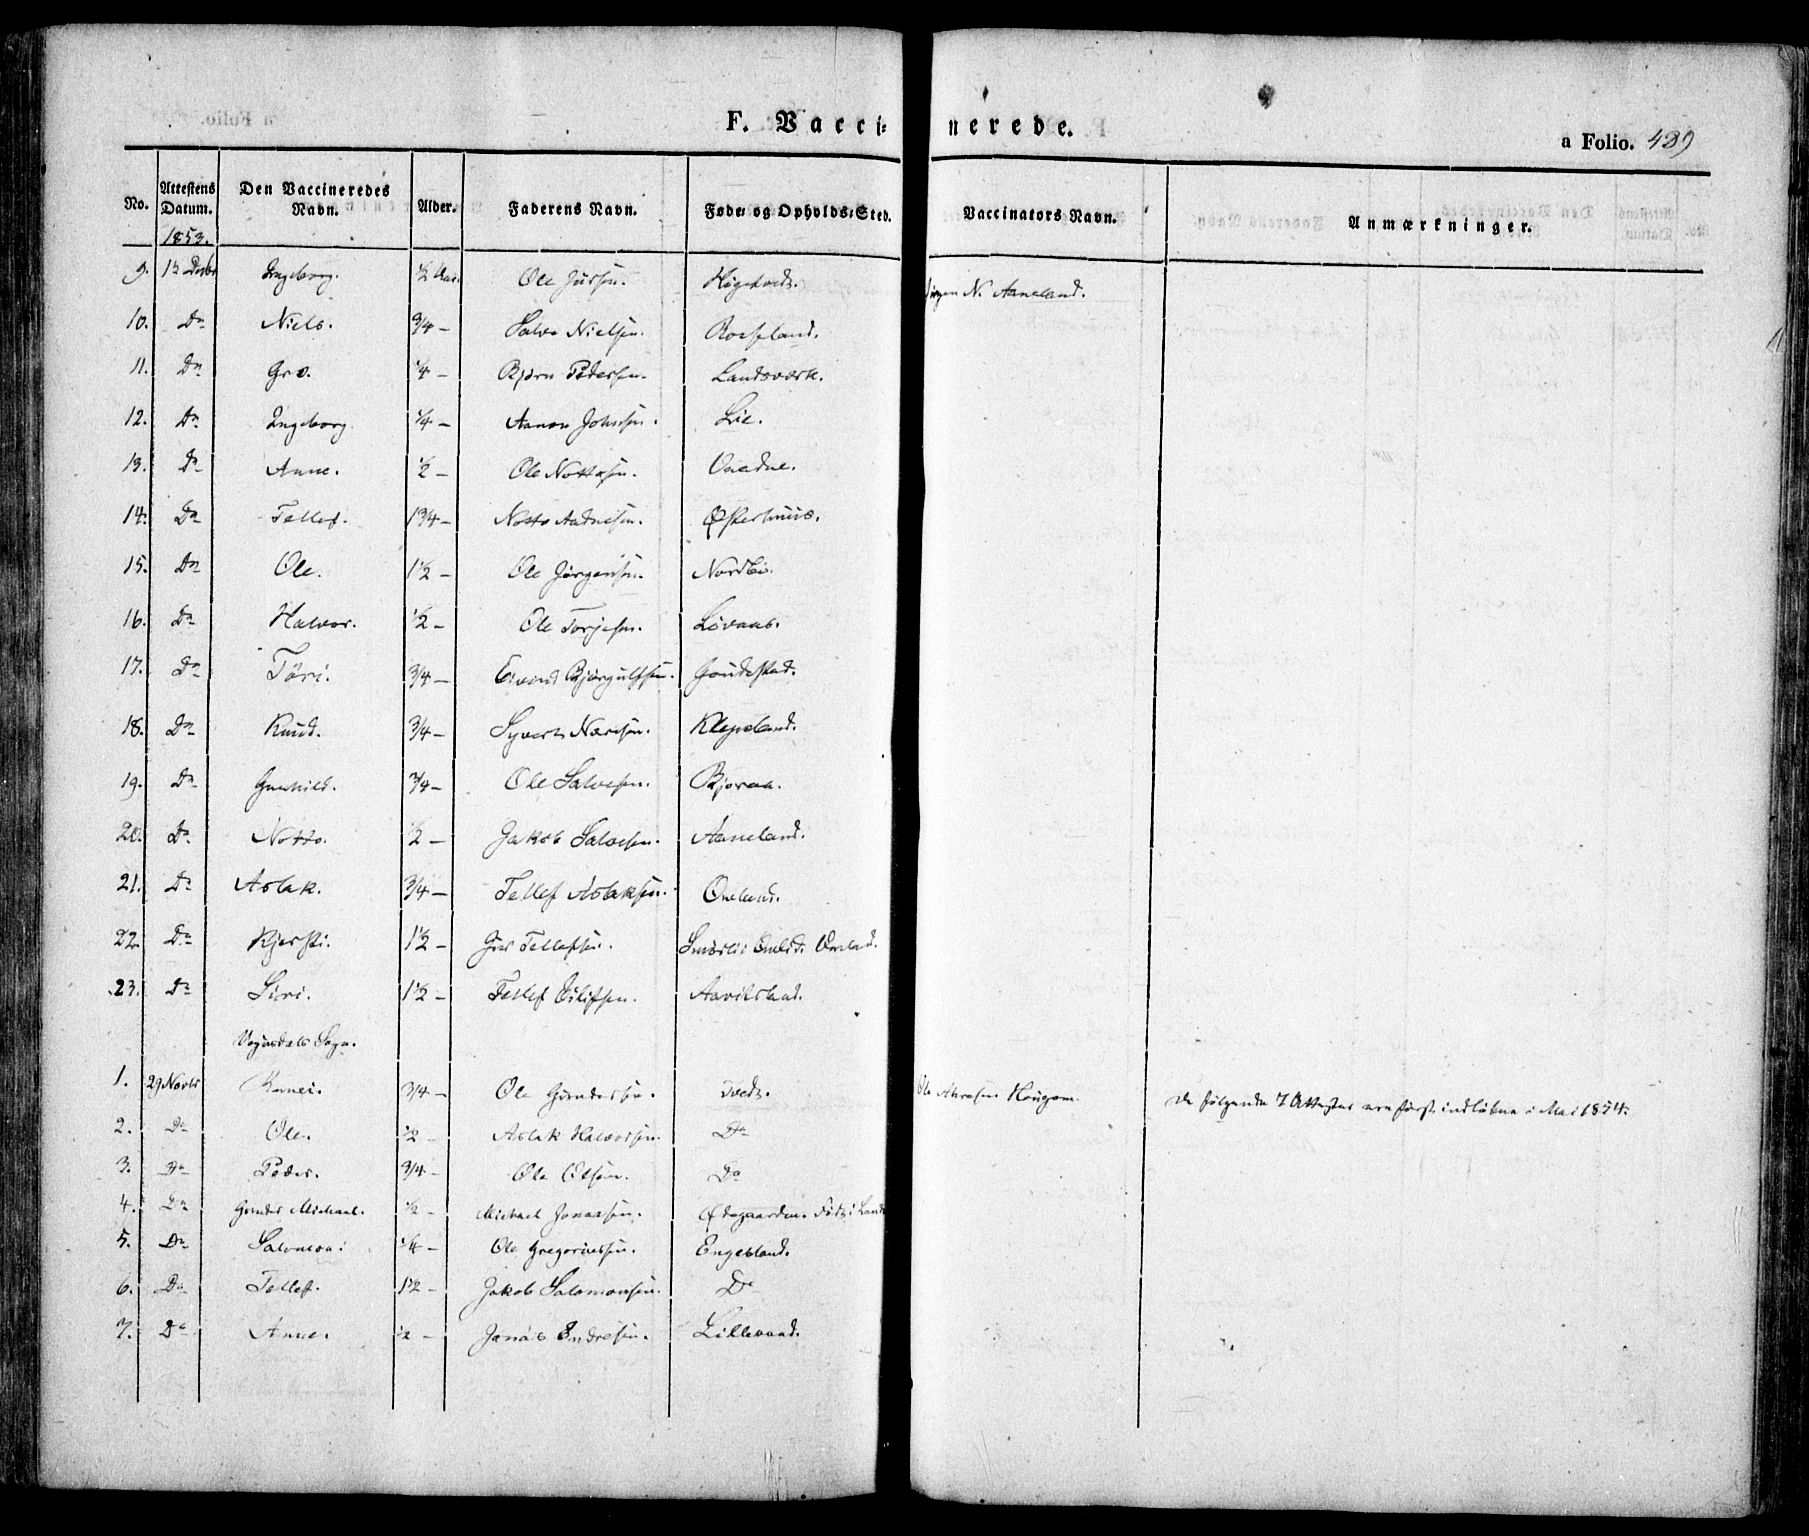 F. Vaccinerede.
a Folio. 489
No. Attestens Datum. Den Vaccineredes Navn. Alder. Faderens Navn. Føde- og Opholds-Sted. Vaccinators Navn. Anmærkninger.
1853.
9. Ingeborg. 1/2 Aar. Ole Høgetvedt. N. Aaneland.
10. Do Niels. 3/4 – Salve Nielsen. Roseland.
11. Do Gro. 1/4 – Bjørn Pedersen. Landsverk.
12. Do Ingeborg. 1/4 – Aanon Johnsen. Lie.
13. Do Anne. 1/2 – Ole Nottosen. Vaadne.
14. Do Tellef. 1 3/4 – Notto Aadnesen. Østerhuus.
15. Do Ole. 1 1/2 – Ole Jørgensen. Nordbø.
16. Do Halvor. 1/2 – Ole Torjesen. Løvaas.
17. Do Tøri. 3/4 – Eivind Bjørgulfsen. Goudestad.
18. Do Knud. 3/4 – Syvert Klepsland.
19. Do Gunhild. 3/4 – Ole Salvesen. Bjoraa.
20. Do Notto. 1/2 – Jakob Salvesen. Aaneland.
21. Do Aslak. 3/4 – Tellef Aslaksen. Omland.
22. Do Kjersti. 1 1/2 – Tellefsen. Omland.
23. Do Siri. 1 1/2 – Tellef Eilifsen. Aavitsland.
Vegusdals Sogn.
1. 29 Novbr 3/4 – Ole Gundersen. Tvedt. Ole Haugom. De følgende 7 Attester ere først indløbne i Mai 1854.
2. Do Ole. 1/2 – Aslak Halvorsen. Do
3. Do Peder. 3/4 – Ole Olsen. Do
4. Do Gunder Michael. 1/2 – Michael Jonassen. Ødegaarden. Født i
5. Do Salomon. 1/4 – Ole Gregoriussen. Engesland.
6. Do Tellef. 1 1/2 – Jakob Salomonsen. Do
7. Do Anne. 1/2 – Jonas Endresen. Lillevand.